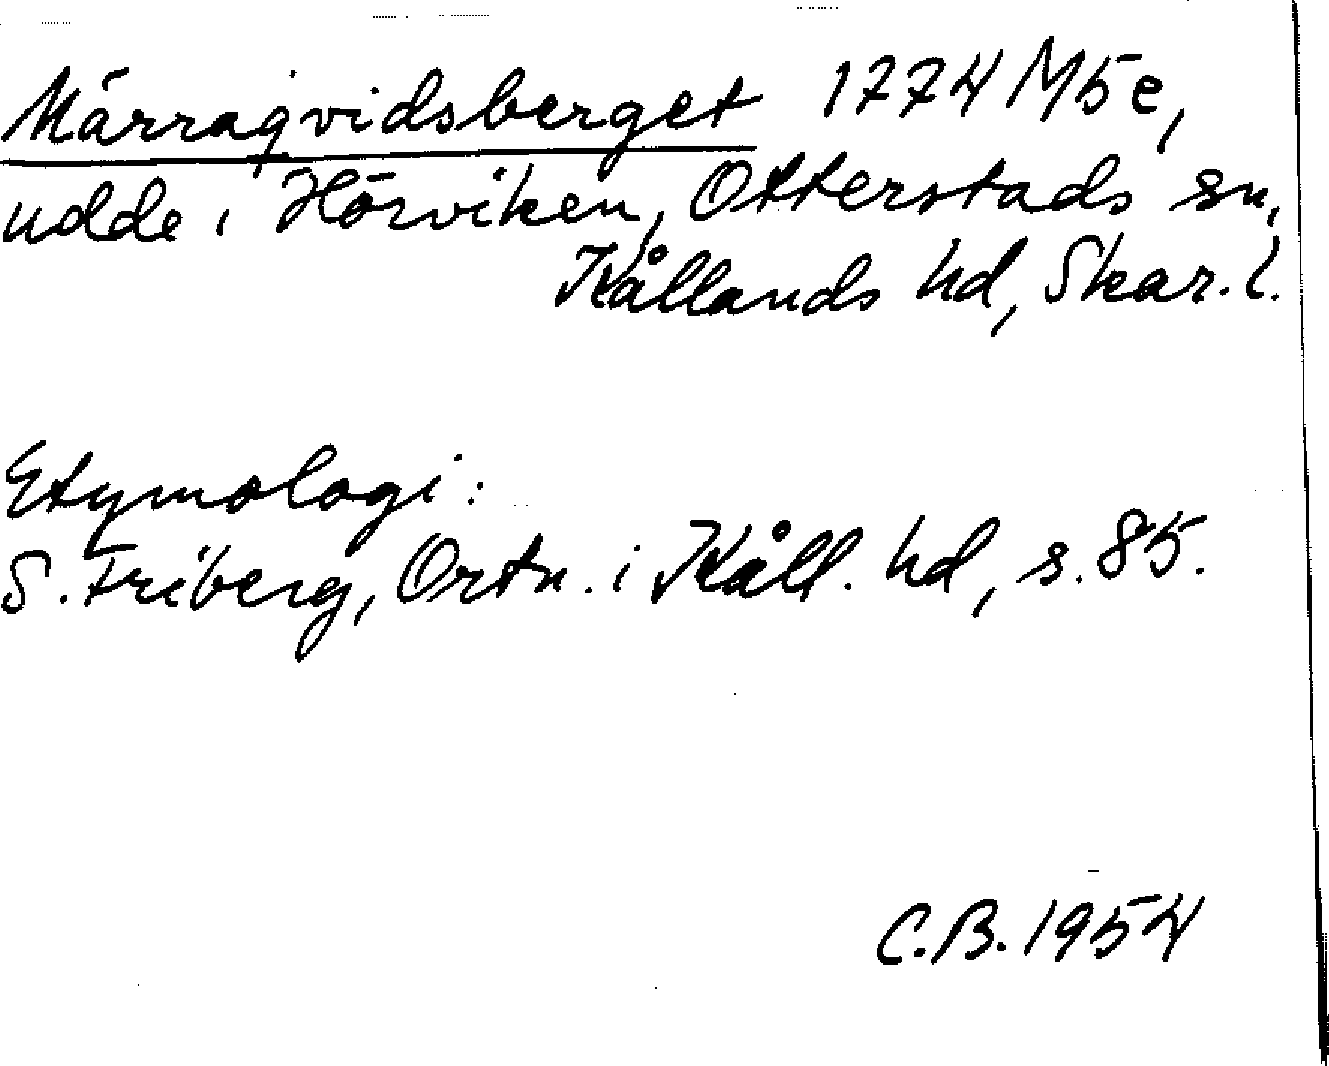 Märraqvidsberget 1774 M5e,
udde i Hörviken, Otterstads sn,
Kållands hd, Skar. l.
Etymologi:
S. Friberg, Ortn. i Kåll. hd, s. 85.
C.B. 1954